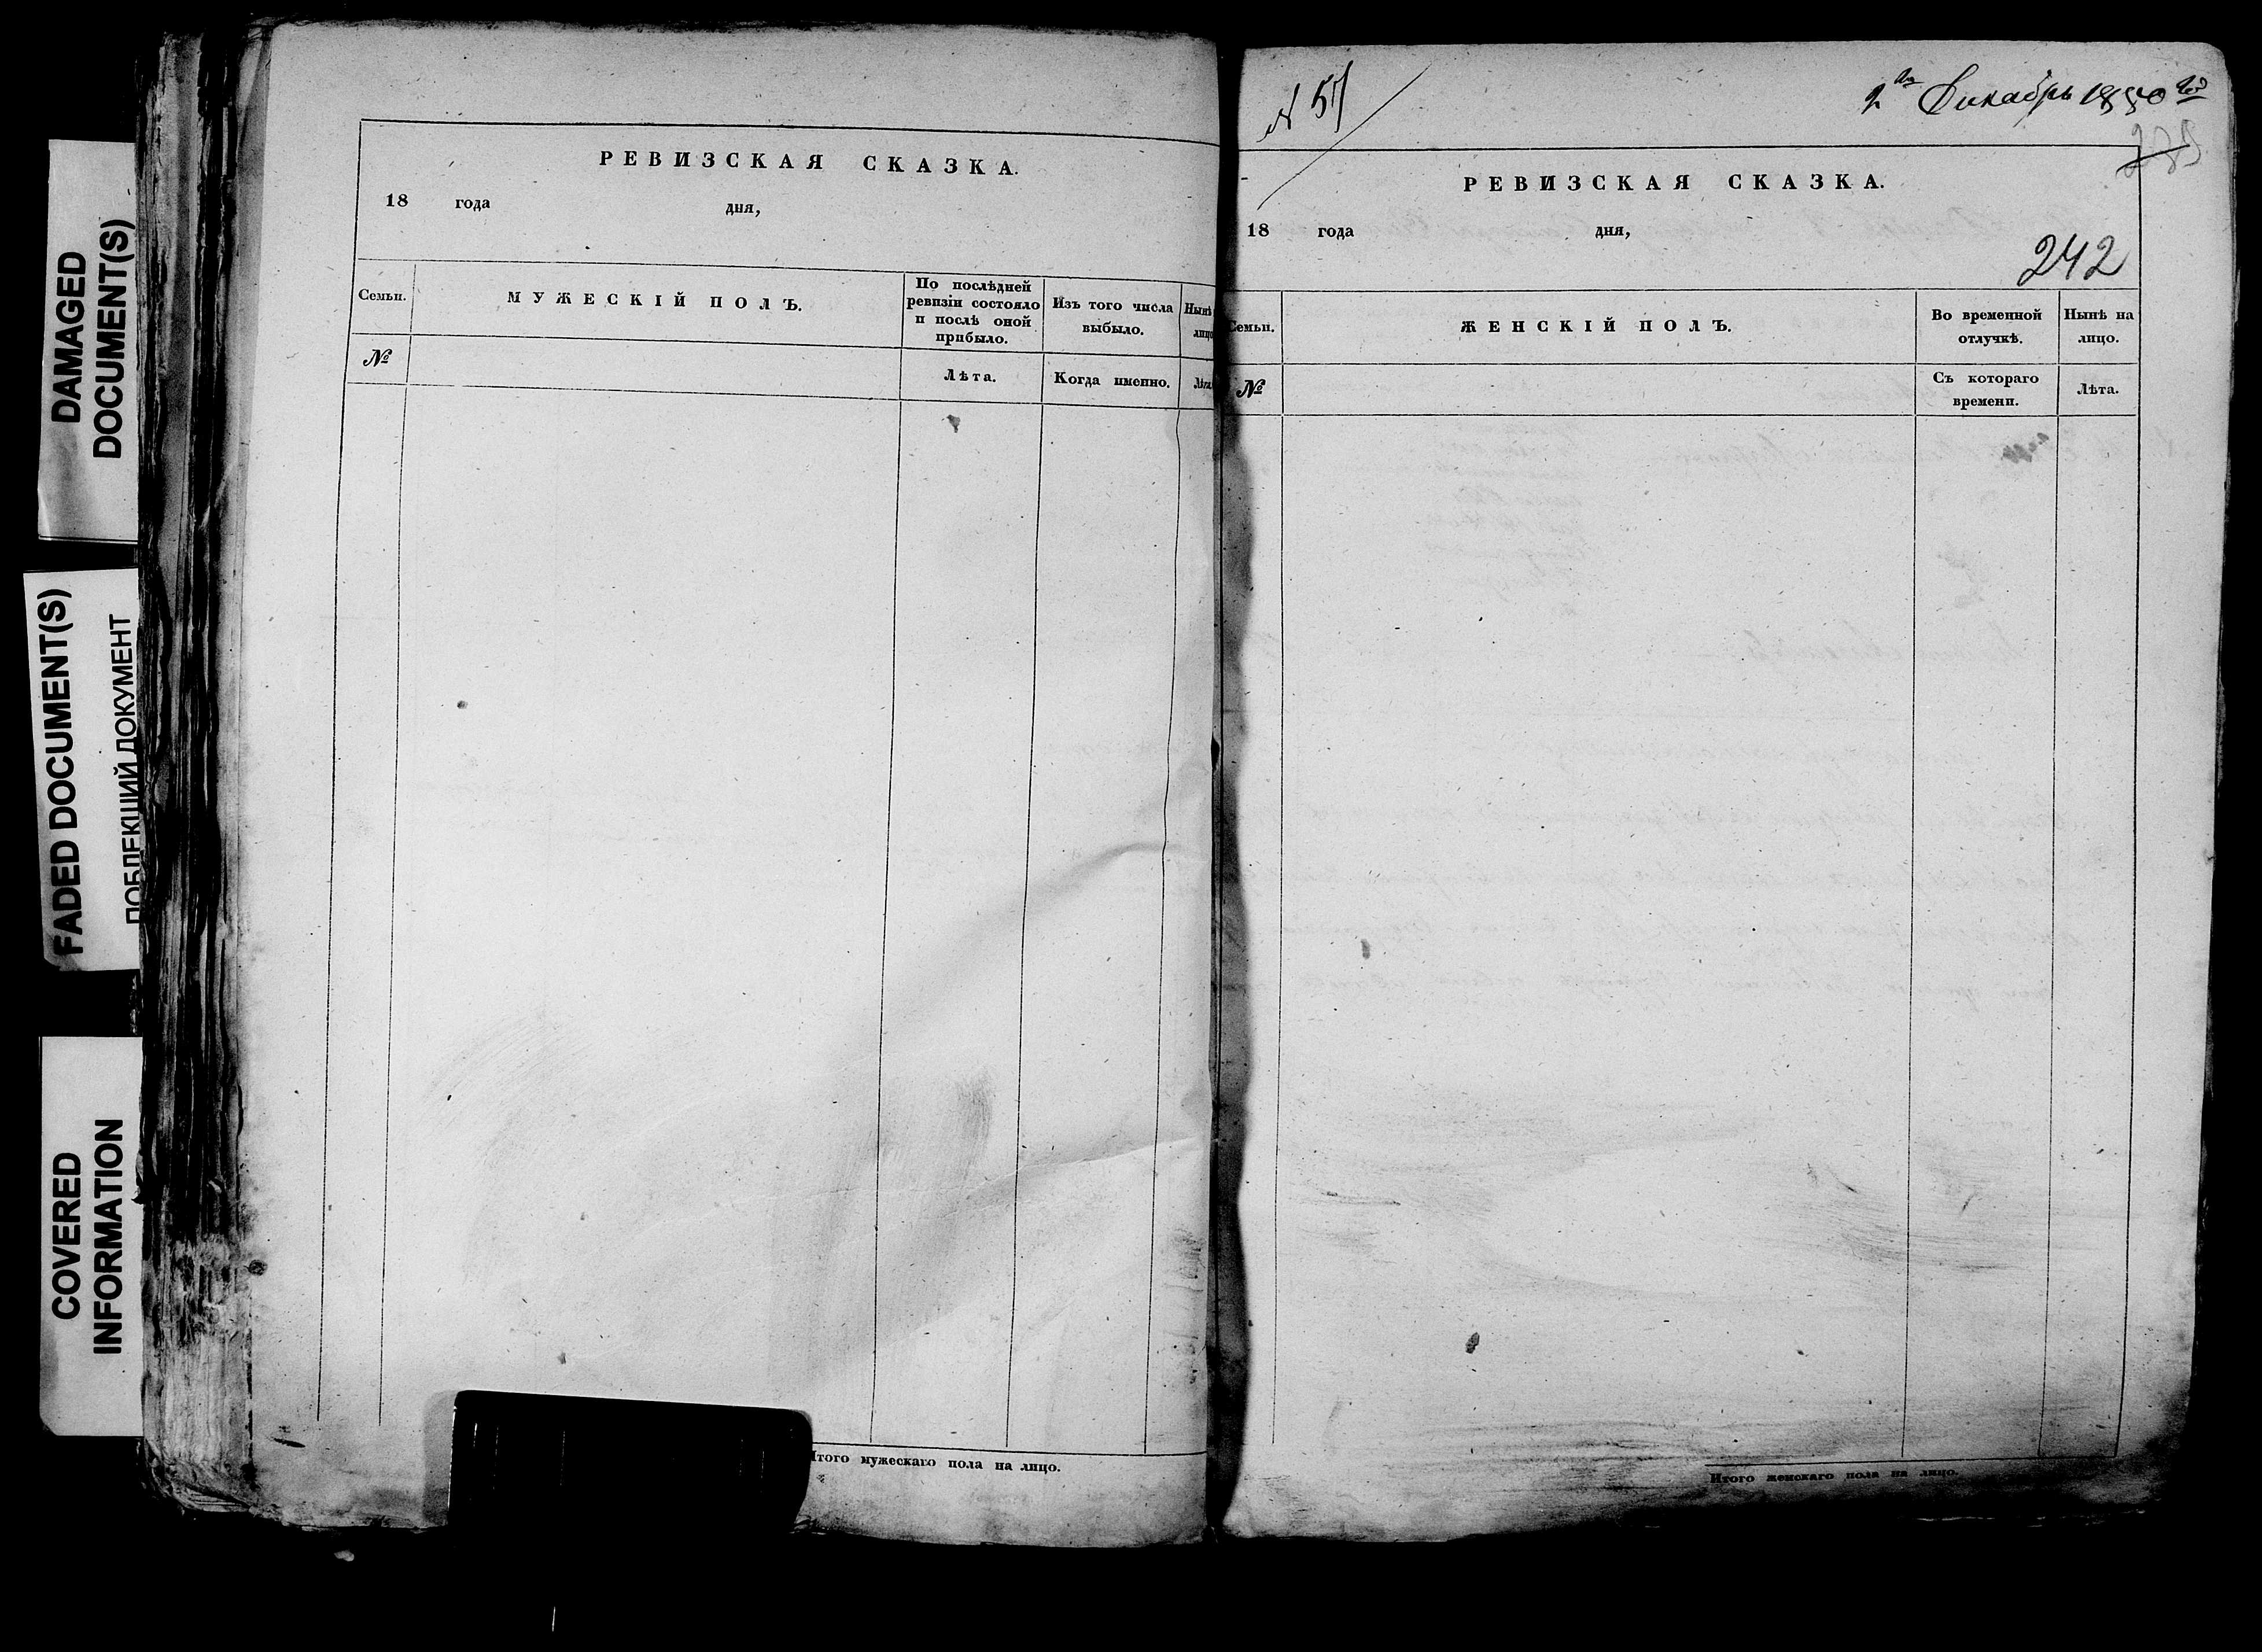 DAMAGED
DOCUMENT(S)
FADED DOCUMENT(S)
ПОБЛЕКШИЙ ДОКУМЕНТ
COVERED
INFORMATION
РЕВИЗСКАЯ СКАЗКА.
18 года дня,
Семьи.
МУЖЕСКІЙ ПОЛЪ.
По послѣдней
ревизіи состояло
и послѣ оной
прибыло.
Изъ того числа
выбыло.
Нынѣ
лицо
№
Лѣта.
Когда именно.
Лѣта.
Итого мужескаго пола на лицо.
№ 57
Декабрь 1850
РЕВИЗСКАЯ СКАЗКА.
18 года дня,
242
Семьи.
ЖЕНСКІЙ ПОЛЪ.
Во временной
отлучкѣ.
Нынѣ на
лицо.
№
Съ котораго
времени.
Лѣта.
Итого женскаго пола на лицо.